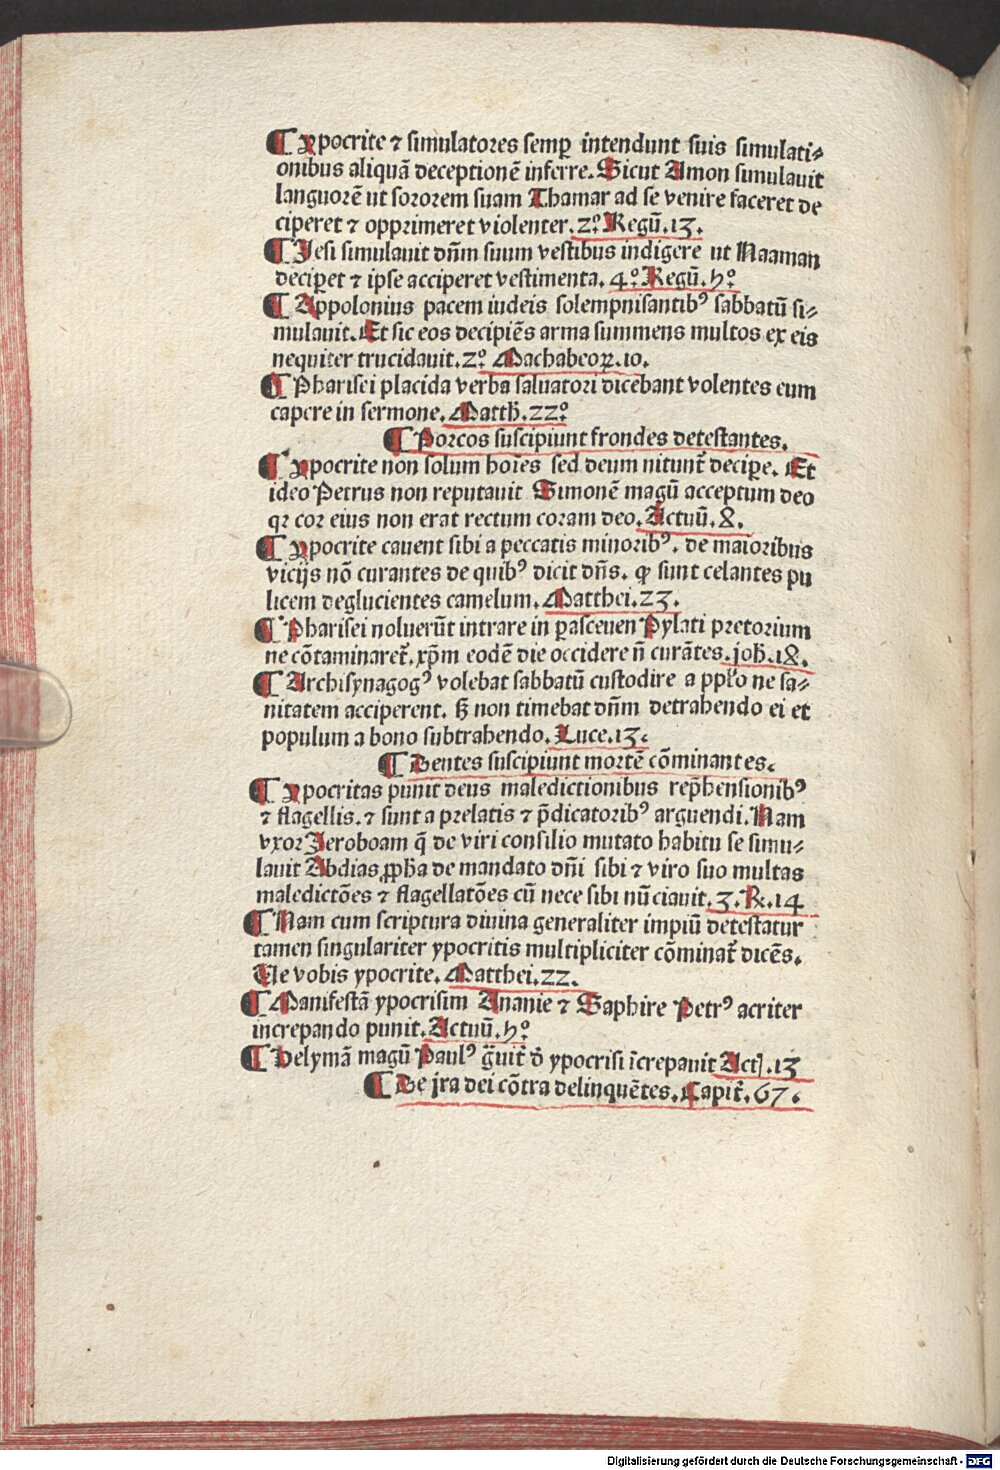 ¶ Ypocrite ⁊ simulatores semꝑ intendunt suis simulati⸗
onibus aliquā deceptionē inferre. Sicut Amon simulauit
languorē ut sororem suam Thamar ad se venire faceret de
ciperet ⁊ opprimeret violenter. 2°. Regū. 13.
¶ Jesi simulauit dn̄m suum vestibus indigere ut Naaman
deciꝑet ⁊ ipse acciperet vestimenta. 4°. Regū. 5°
¶ Appolonius pacem iudeis solempnisantibꝰ sabbatū si⸗
mulauit. Et sic eos decipiēs arma summens multos ex eis
nequiter trucidauit. 2°. Machabeoꝝ. 10.
¶ Pharisei placida verba saluatori dicebant volentes eum
capere in sermone. Matth̄. 22°
¶ Porcos suscipiunt frondes detestantes.
¶ Ypocrite non solum hoīes sed deum nitunt̄ deciꝑe. Et
ideo Petrus non reputauit Simonē magū acceptum deo
qꝛ cor eius non erat rectum coram deo. Actuū. 8.
¶ Ypocrite cauent sibi a peccatis minoribꝰ. de maioribus
vicijs nō curantes de quibꝰ dicit dn̄s. ꝙ sunt celantes pu
licem deglucientes camelum. Matthei. 23.
¶ Pharisei noluerūt intrare in ꝑasceuen Pylati pretorium
ne cōtaminaret̄. xp̄m eodē die occidere n̄ curātes. joh̄. 18.
¶ Archisynagogꝰ volebat sabbatū custodire a ppl̄o ne sa⸗
nitatem acciperent. sꝫ non timebat dn̄m detrahendo ei et
populum a bono subtrahendo. Luce. 13.
¶ Gentes suscipiunt mortē cōminantes.
¶ Ypocritas punit deus maledictionibus rep̄hensionibꝰ
⁊ flagellis. ⁊ sunt a prelatis ⁊ p̄dicatoribꝰ arguendi. Nam
vxor Jeroboam q̄ de viri consilio mutato habitu se simu⸗
lauit Abdias ꝓpha de mandato dn̄i sibi ⁊ viro suo multas
maledictōes ⁊ flagellatōes cū nece sibi nūciauit. 3. R. 14
¶ Nam cum scriptura diuina generaliter impiū detestatur
tamen singulariter ypocritis multipliciter cōminat̄ dicēs.
Ve vobis ypocrite. Matthei. 22.
¶ Manifestā ypocrisim Ananie ⁊ Saphire Petrꝰ acriter
increpando punit. Actuū. 5°
¶ Helymā magū Paulꝰ g̈uit̄ d̄ ypocrisi īcrepauit Act. 13
¶ De jra dei cōtra delinquētes. Capit̄. 67.
Digitalisierung gefördert durch die Deutsche Forschungsgemeinschaft - DFG